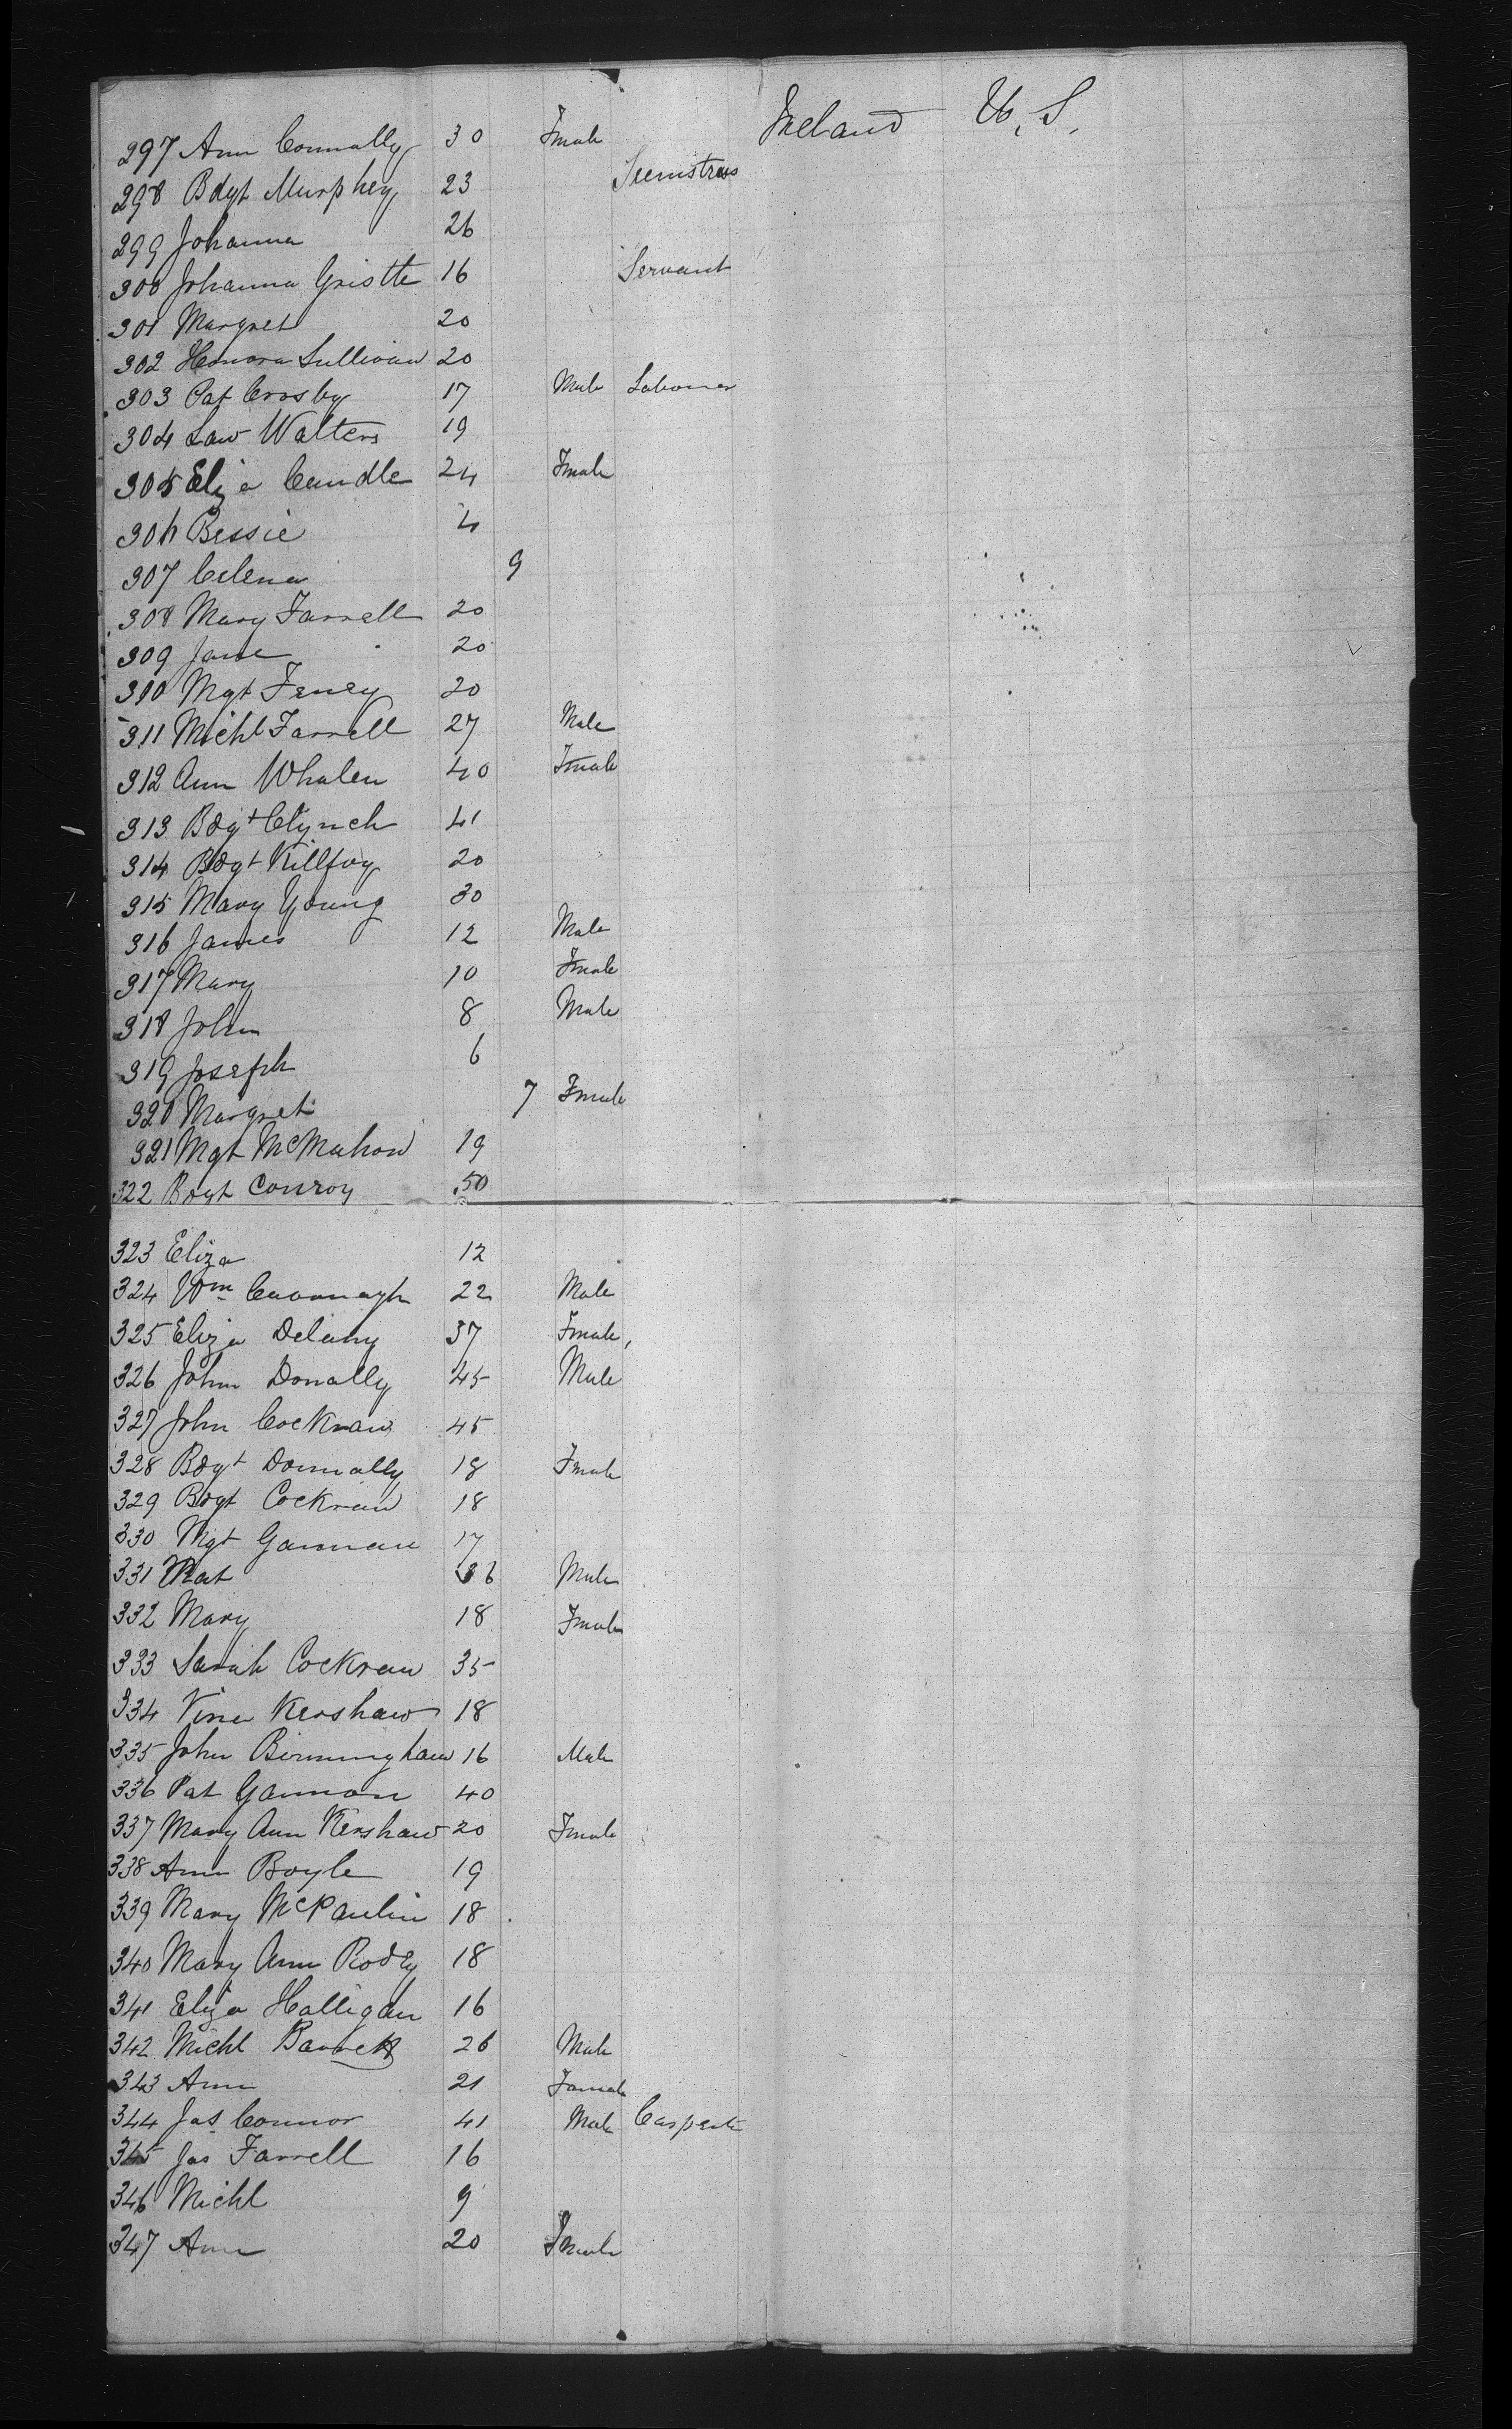 297 Ann Connally 30 Fmale Ireland U, S,
298 Bdgt Murphey 23 Seemstress
299 Johanna 26
300 Johanna Gristte 16 Servant
301 Margret 20
302 Honora Sullivan 20
303 Pat Crosby 17 Male Labourer
304 Law Walters 19
305 Eliza Cundle 24 Fmale
306 Bessie 4
307 Celena 9
308 Mary Farrell 20
309 Jane 20
310 Mgt Feney 20
311 Michl Farrell 27 Male
312 Ann Whalen 40 Fmale
313 Bdgt Clynch 41
314 Bdgt Killfoy 20
315 Mary Young 30
316 James 12 Male
317 Mary 10 Fmale
318 John 8 Male
319 Joseph 6
320 Margret 7 Fmale
321 Mgt McMahon 19
322 Bdgt Conroy 50
323 Eliza 12
324 Wm Cavanagh 22 Male
325 Eliza Delany 37 Fmale,
326 John Donally 45 Male
327 John Cockran 45
328 Bdgt Donnally 18 Fmale
329 Bdgt Cockran 18
330 Mgt Gannan 17
331 Pat 36 Male
332 Mary 18 Fmale
333 Sarah Cockran 35
334 Kershaw 18
335 John Birmingham 16 Male
336 Pat Gannon 40
337 Mary Ann Kershaw 20 Fmale
338 Ann Boyle 19
339 Mary McPaulin 18
340 Mary Ann Rody 18
341 Eliza Halligan 16
342 Michl Barrett 26 Male
343 Ann 21 Famale
344 Jas Connor 41 Male Carpente
345 Jas Farrell 16
346 Michl 9
347 Ann 20 Fmale